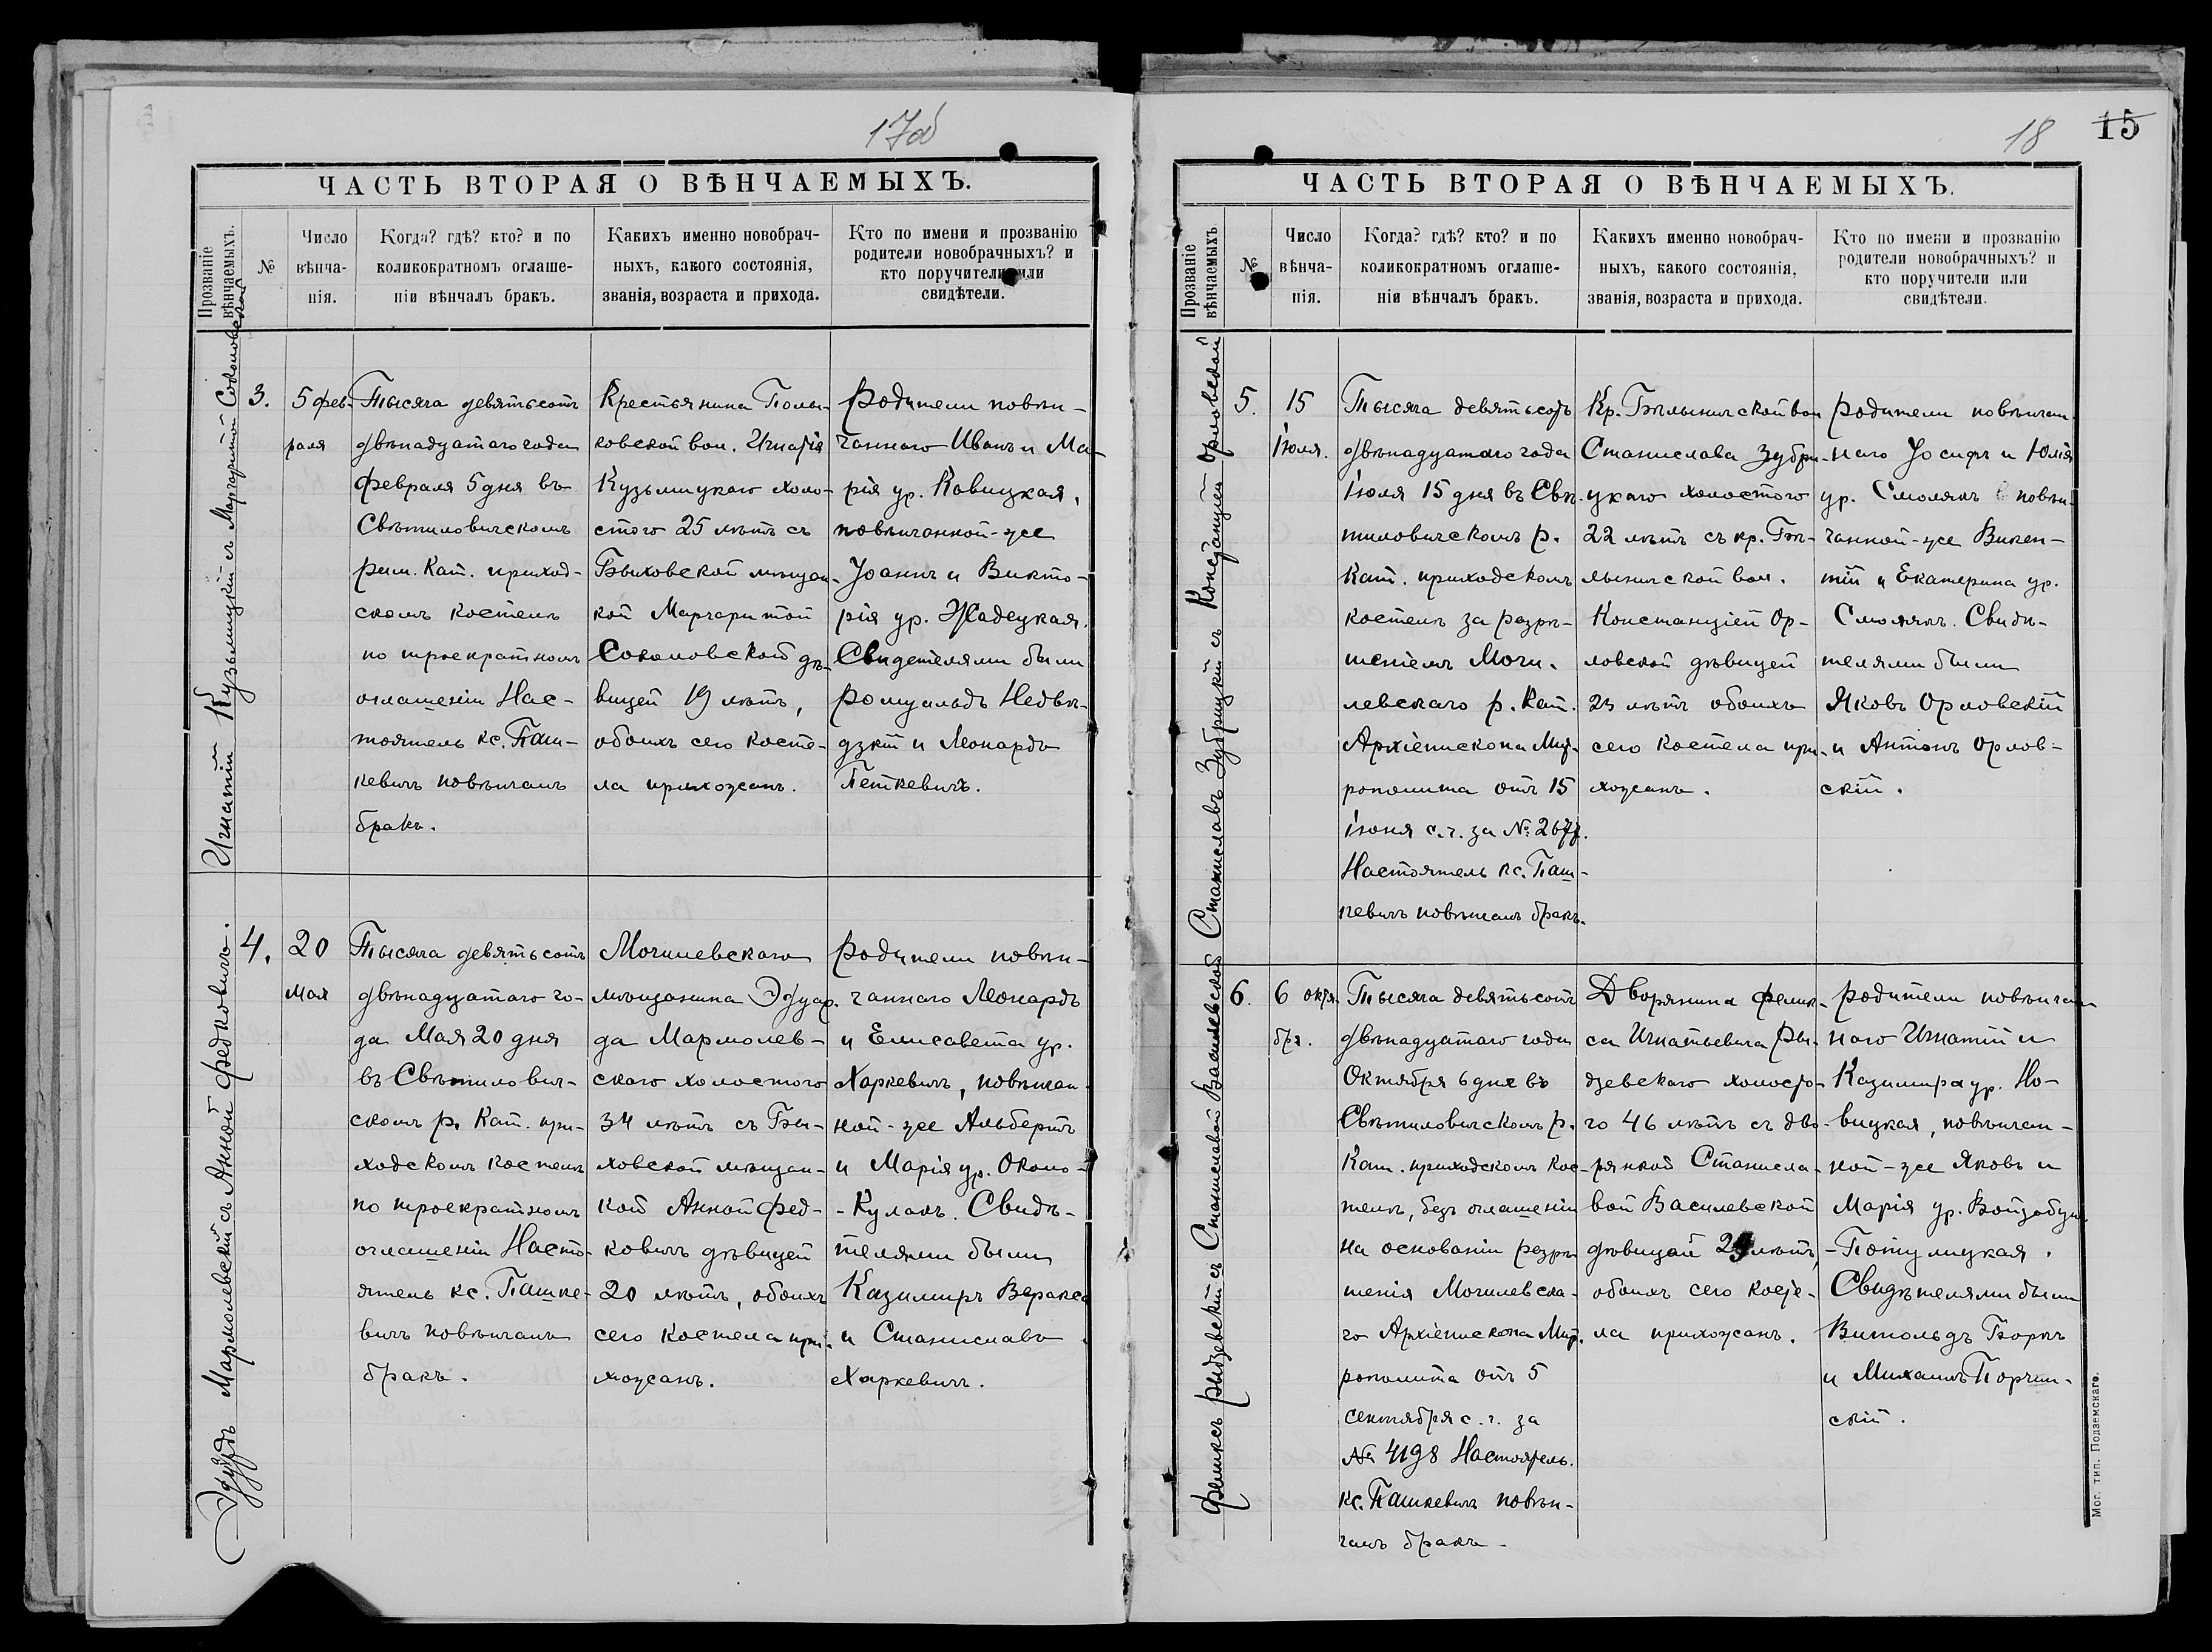 17об
ЧАСТЬ ВТОРАЯ О ВѢНЧАЕМЫХЪ.
Прозваніе
вѣнчаемыхъ.
№
Число
вѣнча-
нія.
Когда? гдѣ? кто? и по
коликократномъ оглаше-
ніи вѣнчалъ бракъ.
Какихъ именно новобрач-
ныхъ, какого состоянія,
званія, возраста и прихода.
Кто по имени и прозванію
родители новобрачныхъ? и
кто поручители или
свидѣтели.
Игнатій Кузьмицкій съ Маргаритой Соколовской
3.
5 фев-
раля
Тысяча девятьсотъ
двѣнадцатаго года
Февраля 5 дня въ
Свѣтиловичскомъ
рим. Кат. приход-
скомъ костелѣ
по троекратномъ
оглашеніи Нас-
тоятель кс. Паш-
кевичъ повѣнчалъ
бракъ.
Крестьянина Полы-
ковской вол. Игнатія
Кузьмицкаго холо-
стого 25 лѣтъ съ
Быховской мѣщан-
кой Маргаритой
Соколовской дѣ-
вицей 19 лѣтъ,
обоихъ сего косте-
ла прихожанъ.
Родители повѣн-
чаннаго Иванъ и Ма-
рія ур. Ковицкая,
повѣнчанной-же
Іоаннъ и Викто-
рія ур. Жадецкая.
Свидетелями были
Ромуальдъ Недвѣ-
дзкій и Леонардъ
Петкевичъ.
Эдуардъ Мармолевскій съ Анной Федковичъ.
4.
20
Мая
Тысяча девятьсотъ
двѣнадцатаго го-
да Мая 20 дня
въ Свѣтилович-
скомъ р. Кат. при-
ходскомъ костелѣ
по троекратномъ
оглашеніи Насто-
ятель кс. Пашке-
вичъ повѣнчалъ
бракъ.
Могилевскаго
мѣщанина Эдуар-
да Мармолев-
скаго холостого
34 лѣтъ съ Бы-
ховской мѣщан-
кой Анной Фед-
ковичъ дѣвицей
20 лѣтъ, обоихъ
сего костела при-
хожанъ.
Родители повѣн-
чаннаго Леонардъ
и Елисавета ур.
Харкевичъ, повѣнчан-
ной-же Альбертъ
и Марія ур. Около-
-Кулакъ. Свидѣ-
телями были
Казимиръ Веракса
и Станиславъ
Харкевичъ.
18
15
ЧАСТЬ ВТОРАЯ О ВѢНЧАЕМЫХЪ.
Прозваніе
вѣнчаемыхъ
№
Число
вѣнча-
нія.
Когда? гдѣ? кто? и по
коликократномъ оглаше-
ніи вѣнчалъ бракъ.
Какихъ именно новобрач-
ныхъ, какого состоянія,
званія, возраста и прихода.
Кто по имени и прозванію
родители новобрачныхъ? и
кто поручители или
свидѣтели.
Станиславъ Зубрицкій съ Констанціей Орловской
5.
15
Іюля.
Тысяча девятьсотъ
двѣнадцатаго года
Іюля 15 дня въ Свѣ-
тиловичскомъ р.
Кат. приходскомъ
костелѣ за разрѣ-
шеніемъ Моги-
левскаго р. Кат.
Архіепископа Мит-
рополита отъ 15
Іюня с.г. за № 2677.
Настоятель кс. Паш-
кевичъ повѣнчалъ бракъ.
Кр. Бѣлыничской вол
Станислава Зубри-
цкаго холостого
22 лѣтъ съ кр. Бѣ-
лыничской вол.
Констанціей Ор-
ловской дѣвицей
23 лѣтъ обоихъ
сего костела при-
хожанъ.
Родители повѣнчан-
наго Іосифъ и Юлія
ур. Смолякъ повѣн-
чанной-же Викен-
тій и Екатерина ур.
Смолякъ. Свидѣ-
телями были
Яковъ Орловскій
и Антонъ Орлов-
скій.
Феликсъ Рыдзевскій съ Станиславой Василевской
6.
6 октя-
бря.
Тысяча девятьсотъ
двѣнадцатаго года
Октября 6 дня въ
Свѣтиловичскомъ р.
Кат. приходскомъ Кос-
телѣ, безъ оглашеніи
на основаніи разрѣ
шенія Могилевска-
го Архіепископа Мит-
рополита отъ 5
сентября с.г. за
№ 4198 Настоятель.
кс. Пашкевичъ повѣн-
чалъ бракъ.
Дворянина Фелик-
са Игнатьевича Ры-
дзевскаго холосто-
го 46 лѣтъ съ дво-
рянкой Станисла-
вой Василевской
дѣвицей лѣтъ,
обоихъ сего косте-
ла прихожанъ.
Родители повѣнчан
наго Игнатій и
Казимира ур. Но-
вицкая, повѣнчан-
ной-же Яковъ и
Марія ур.
-Потулицкая.
Свидѣтелями были
Витольдъ Борнъ
и Михаилъ Порчин-
скій.
Мог. тип. Подземскаго.